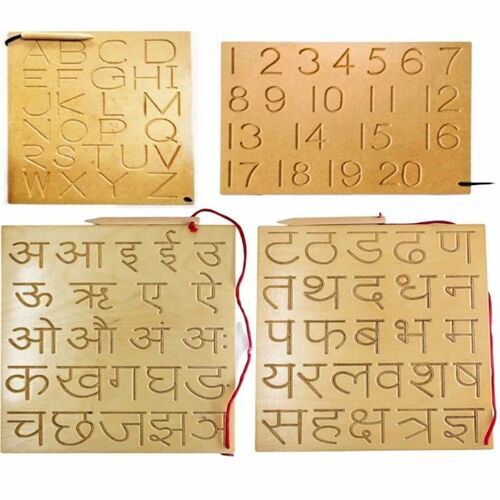 A B C D
E F G H I
J K L M
N O P Q
R S T U V
W X Y Z
1 2 3 4 5 6 7
8 9 10 11 12
13 14 15 16
17 18 19 20
अ आ इ ई उ
ऊ ऋ ए ऐ
ओ औ अं अः
क ख ग घ ङ
च छ ज झ ञ
ट ठ ड ढ ण
त थ द ध न
प फ ब भ म
य र ल व श ष
स ह क्ष त्र ज्ञ